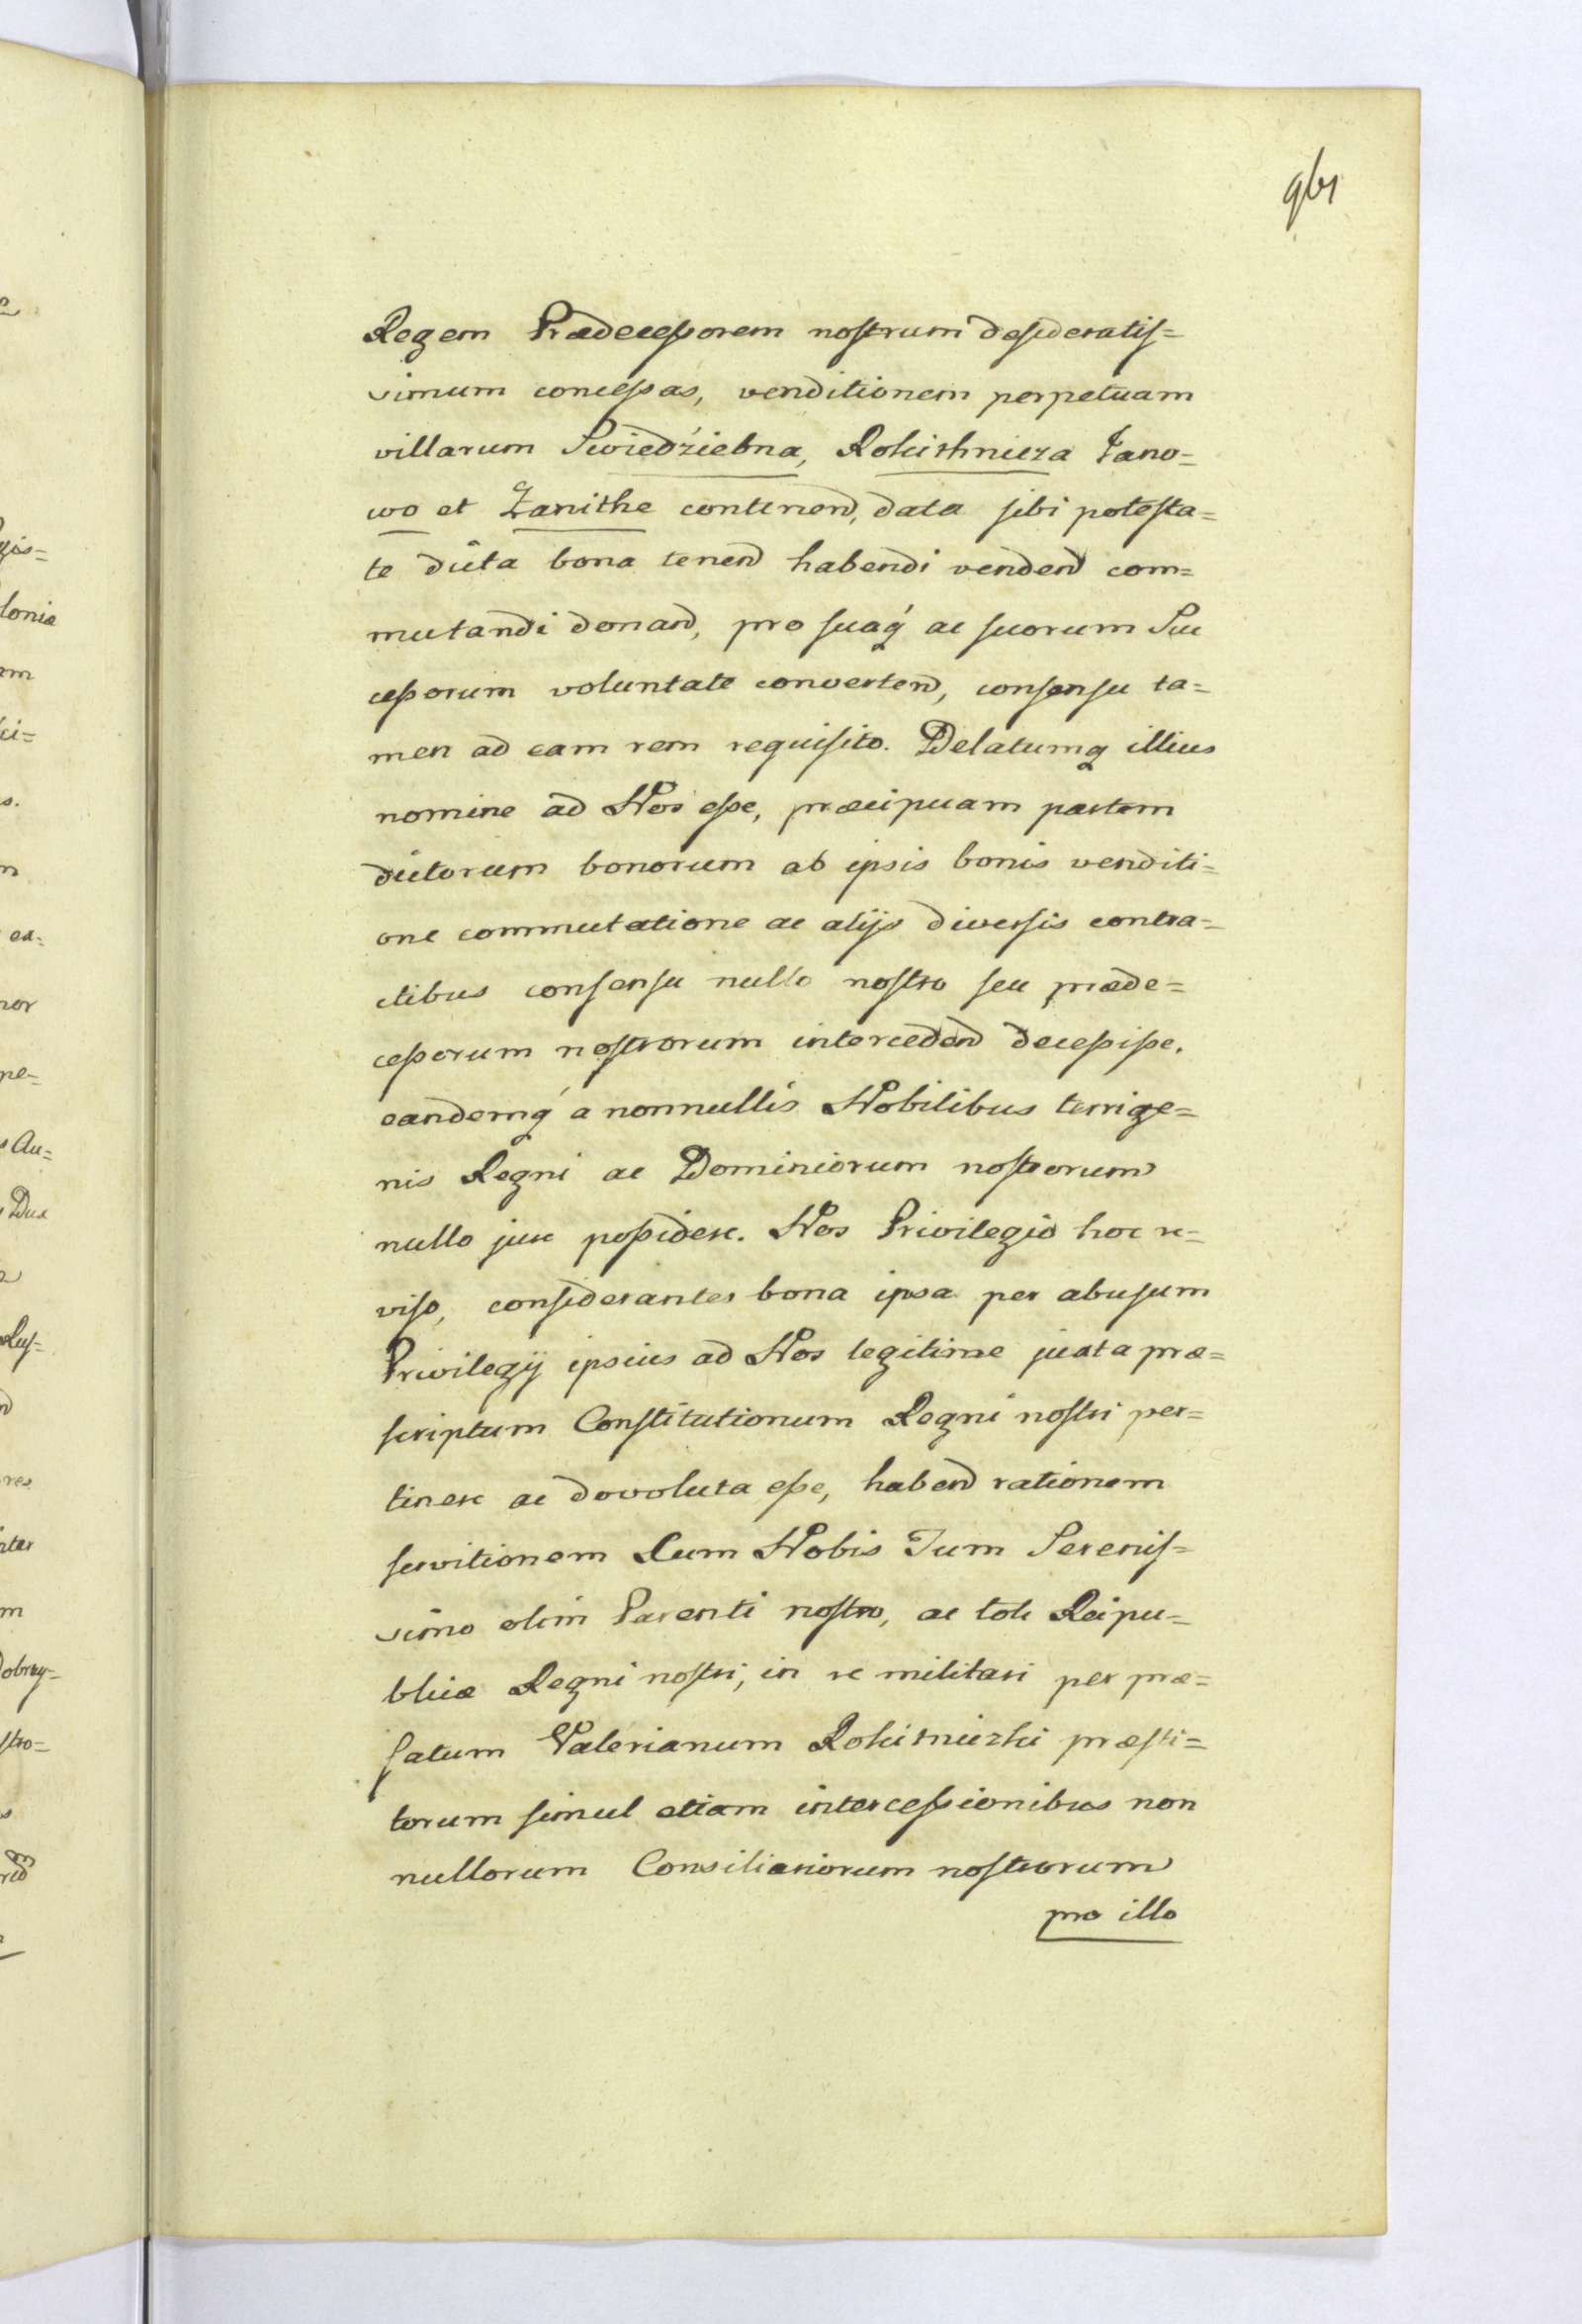 Regem Prædecessorem nostrum desideratis=
simum concessas, venditionem perpetuam
villarum Swiedźiebna, Rokithnicza Jano=
wo et Zanithe continend, data sibi potesta=
te dicta bona tenend habendi vendend com=
mutandi donand, pro suaq́ ac suorum Suc
cessorum voluntate convertend, consensu ta=
men ad eam rem requisito. Delatumq illius
nomine ad Nos esse, præcipuam partem
dictorum bonorum ab ipsis bonis venditi=
one commutatione ac alijs diversis contra=
ctibus consensu nullo nostro seu præde=
cessorum nostrorum intercedend decessisse.
eandemq́ a nonnullis Nobilibus terrige=
nis Regni ac Dominiorum nostrorum
nullo jure possidere. Nos Privilegio hoc re=
viso, considerantes bona ipsa per abusum
Privilegij ipsius ad Nos legitime juxta præ=
scriptum Constitutionum Regni nostri per=
tinere ac devoluta esse, habend rationem
servitionem Cum Nobis Tum Serenis=
simo olim Parenti nostro, ac toti Reipu=
blicæ Regni nostri, in re militari per præ=
fatum Valerianum Rokitniczki præsti=
torum simul etiam intercessionibus non
nullorum Consiliariorum nostrorum
pro illo